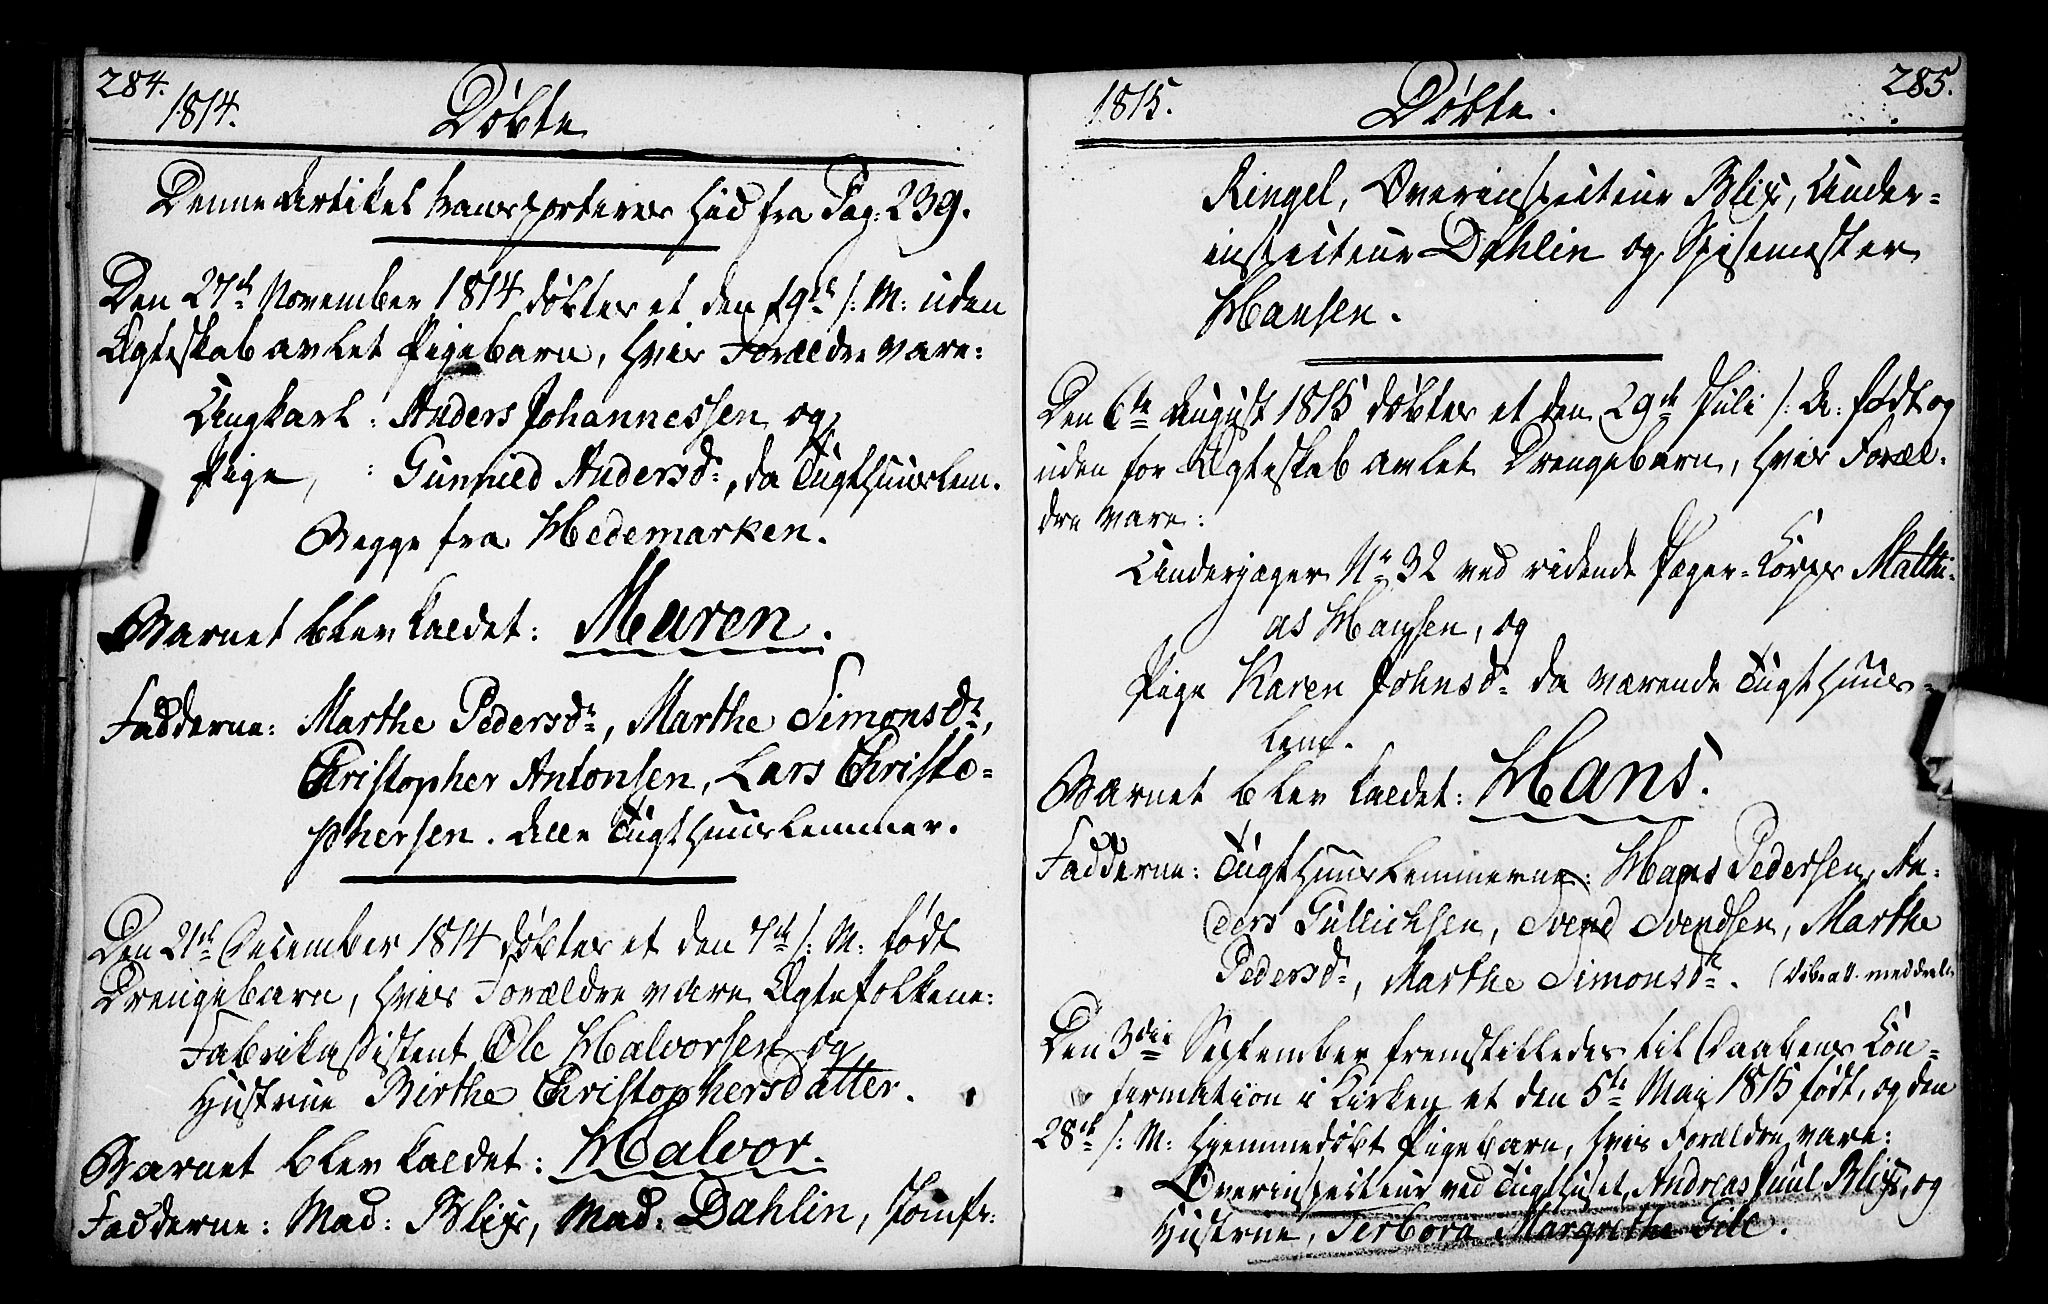 284.
1814.
Døbte
Denne Artikel transporteres hid fra Pag: 239.
Den 27de November 1814 døbtes et den 19de /: M: uden
Ægteskab avlet Pigebarn, hvis Forældre vare:
Ungkarl : Anders Johannessen og
Pige, : Gunnild Andersdr., da Tugthuuslem.
Begge fra Hedemarken.
Barnet blev kaldet: Maren.
Fadderne: Marthe Pedersdr., Marthe Simonsdr.,
Christopher Antonsen, Lars Christo-
phersen. Alle Tugthuuslemmer.
Den 21de December 1814 døbtes et den 7de /: M: født
Drengebarn, hvis Forældre vare Ægtefolkene:
Fabrikassistent Ole Halvorsen og
Hustrue Birthe Christophersdatter.
Barnet blev kaldet: Halvor.
Fadderne: Mad: Blix, Mad. Dahlin, Jomfr:
1815.
Døbte.
285.
Ringel, Overinspecteur Blix, Under-
inspecteur Dahlin og Spisemester
Hansen.
Den 6te August 1815 døbtes et den 29de Juli /: A: født og
uden for Ægteskab avlet Drengebarn, hvis Foræl-
dre vare:
Underjæger No 32 ved ridende Jæger-Corps Matthi-
as Hansen, og
Pige Karen Johnsdr. da værende Tugthuus-
lem.
Barnet blev kaldet: Hans.
Fadderne: Tugthuuslemmerne: Hans Pedersen, An-
ders Gullichsen, Svend Svendsen, Marthe
Pedersdr., Marthe Simonsdr.
Den 3die September fremstilledes til Daabens Con-
firmation i Kirken et den 5te Maj 1815 født, og den
28de /: M: hjemmedøbt Pigebarn, hvis Forældre vare:
Overinspecteur ved Tugthuset, Andreas Juul Blix, og
Hustrue, Terbora Margrethe Gill.